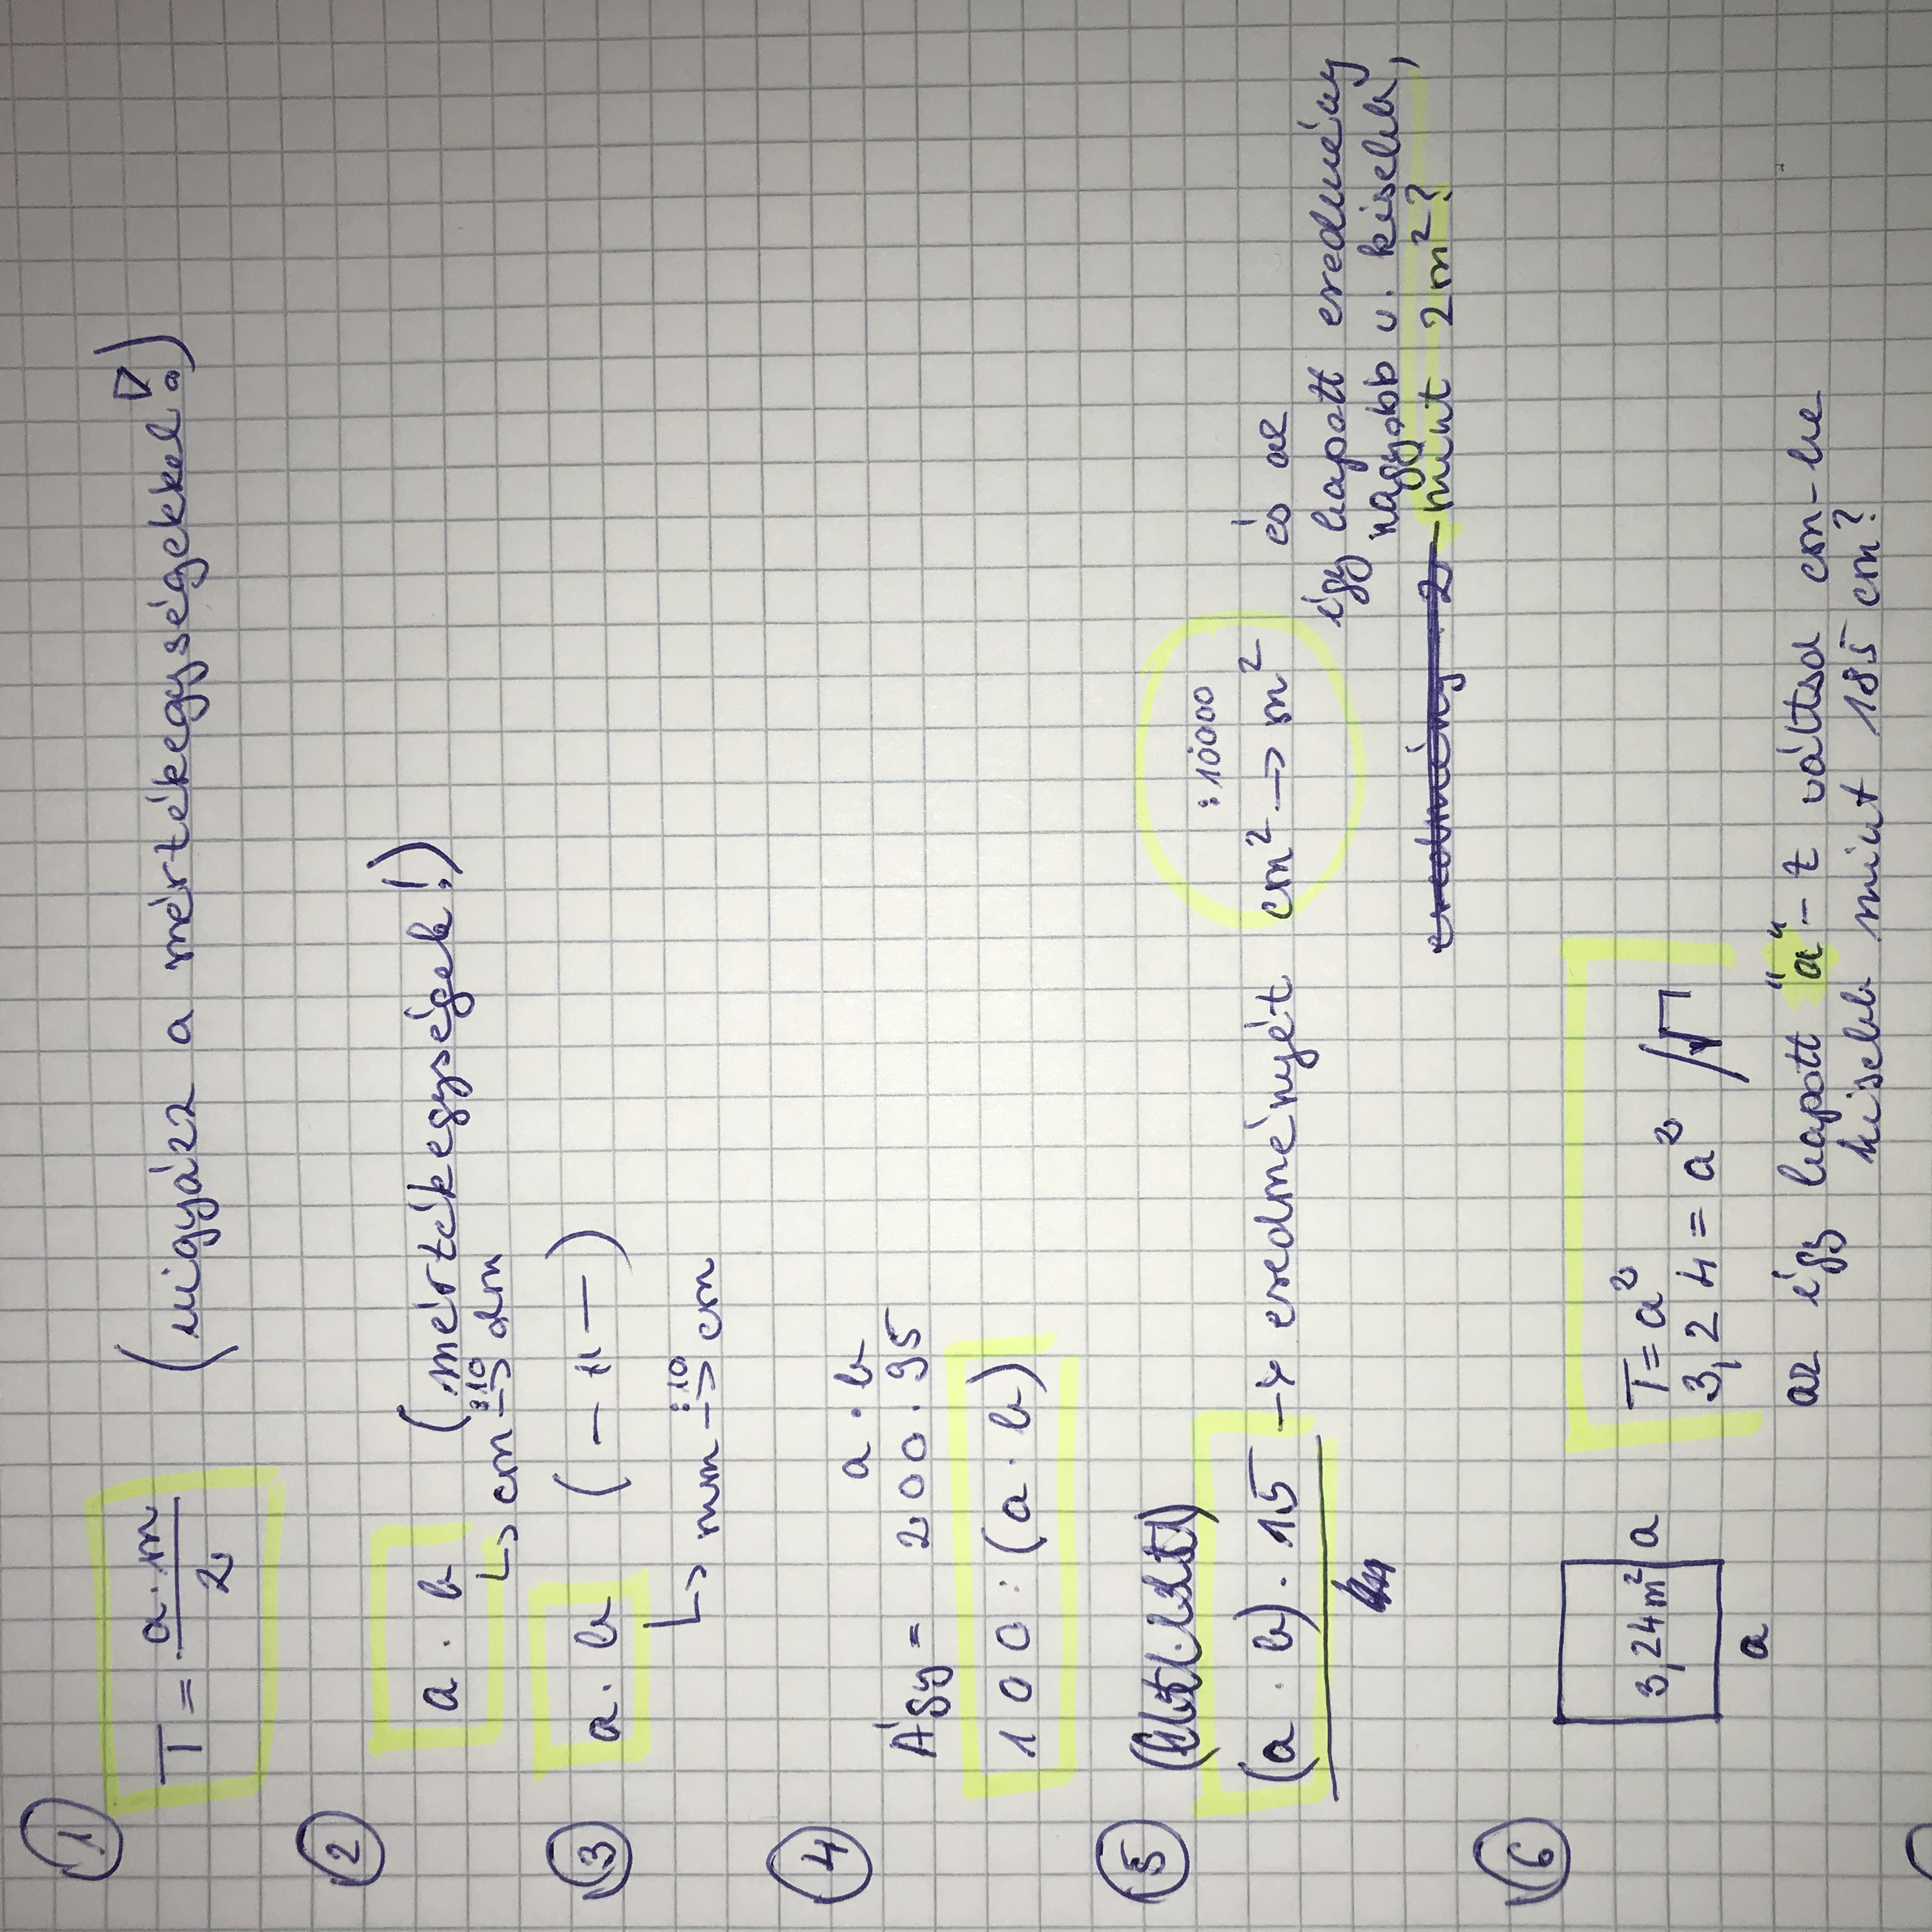 ① T = a·m / 2 (vigyázz a mértékegységekkel!)
② a · b (mértékegységek!)
↳ cm :10→ dm
③ a · b ( — 〃 — )
↳ mm :10→ cm
④ a · b
Ágy = 200 · 95
100 : (a · b)
⑤
(a · b) · 15 → eredményét cm² → m² :10000 és az
így kapott eredmény
nagyobb v. kisebb,
mint 2m²?
⑥ 3,24m² a
a
T = a²
3,24 = a² /√
az így kapott "a"-t váltsd cm-be
kisebb mint 185 cm?